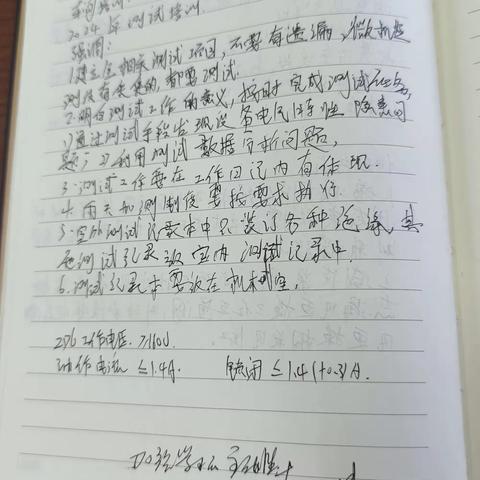 车间培训
2024年测试培训
强调:
1.建立全相关测试项目,不要有遗漏,微机监
测没有采集的,都要测试.
2.明白测试工作的意义,按时完成测试任务,
1)通过测试手段发现设备电气特性隐患问
题;2)利用测试数据分析问题,
3.测试工作要在工作日记内有体现.
4.雨天加测制度要按要求执行.
5.室外测试记录本中只装订各种绝缘,其
他测试记录放室内测试记录中.
6.测试记录本要放在机械室.
ZD6工作电压.≥160V.
动作电流≤1.4A. ≤1.4(+0.3)A.